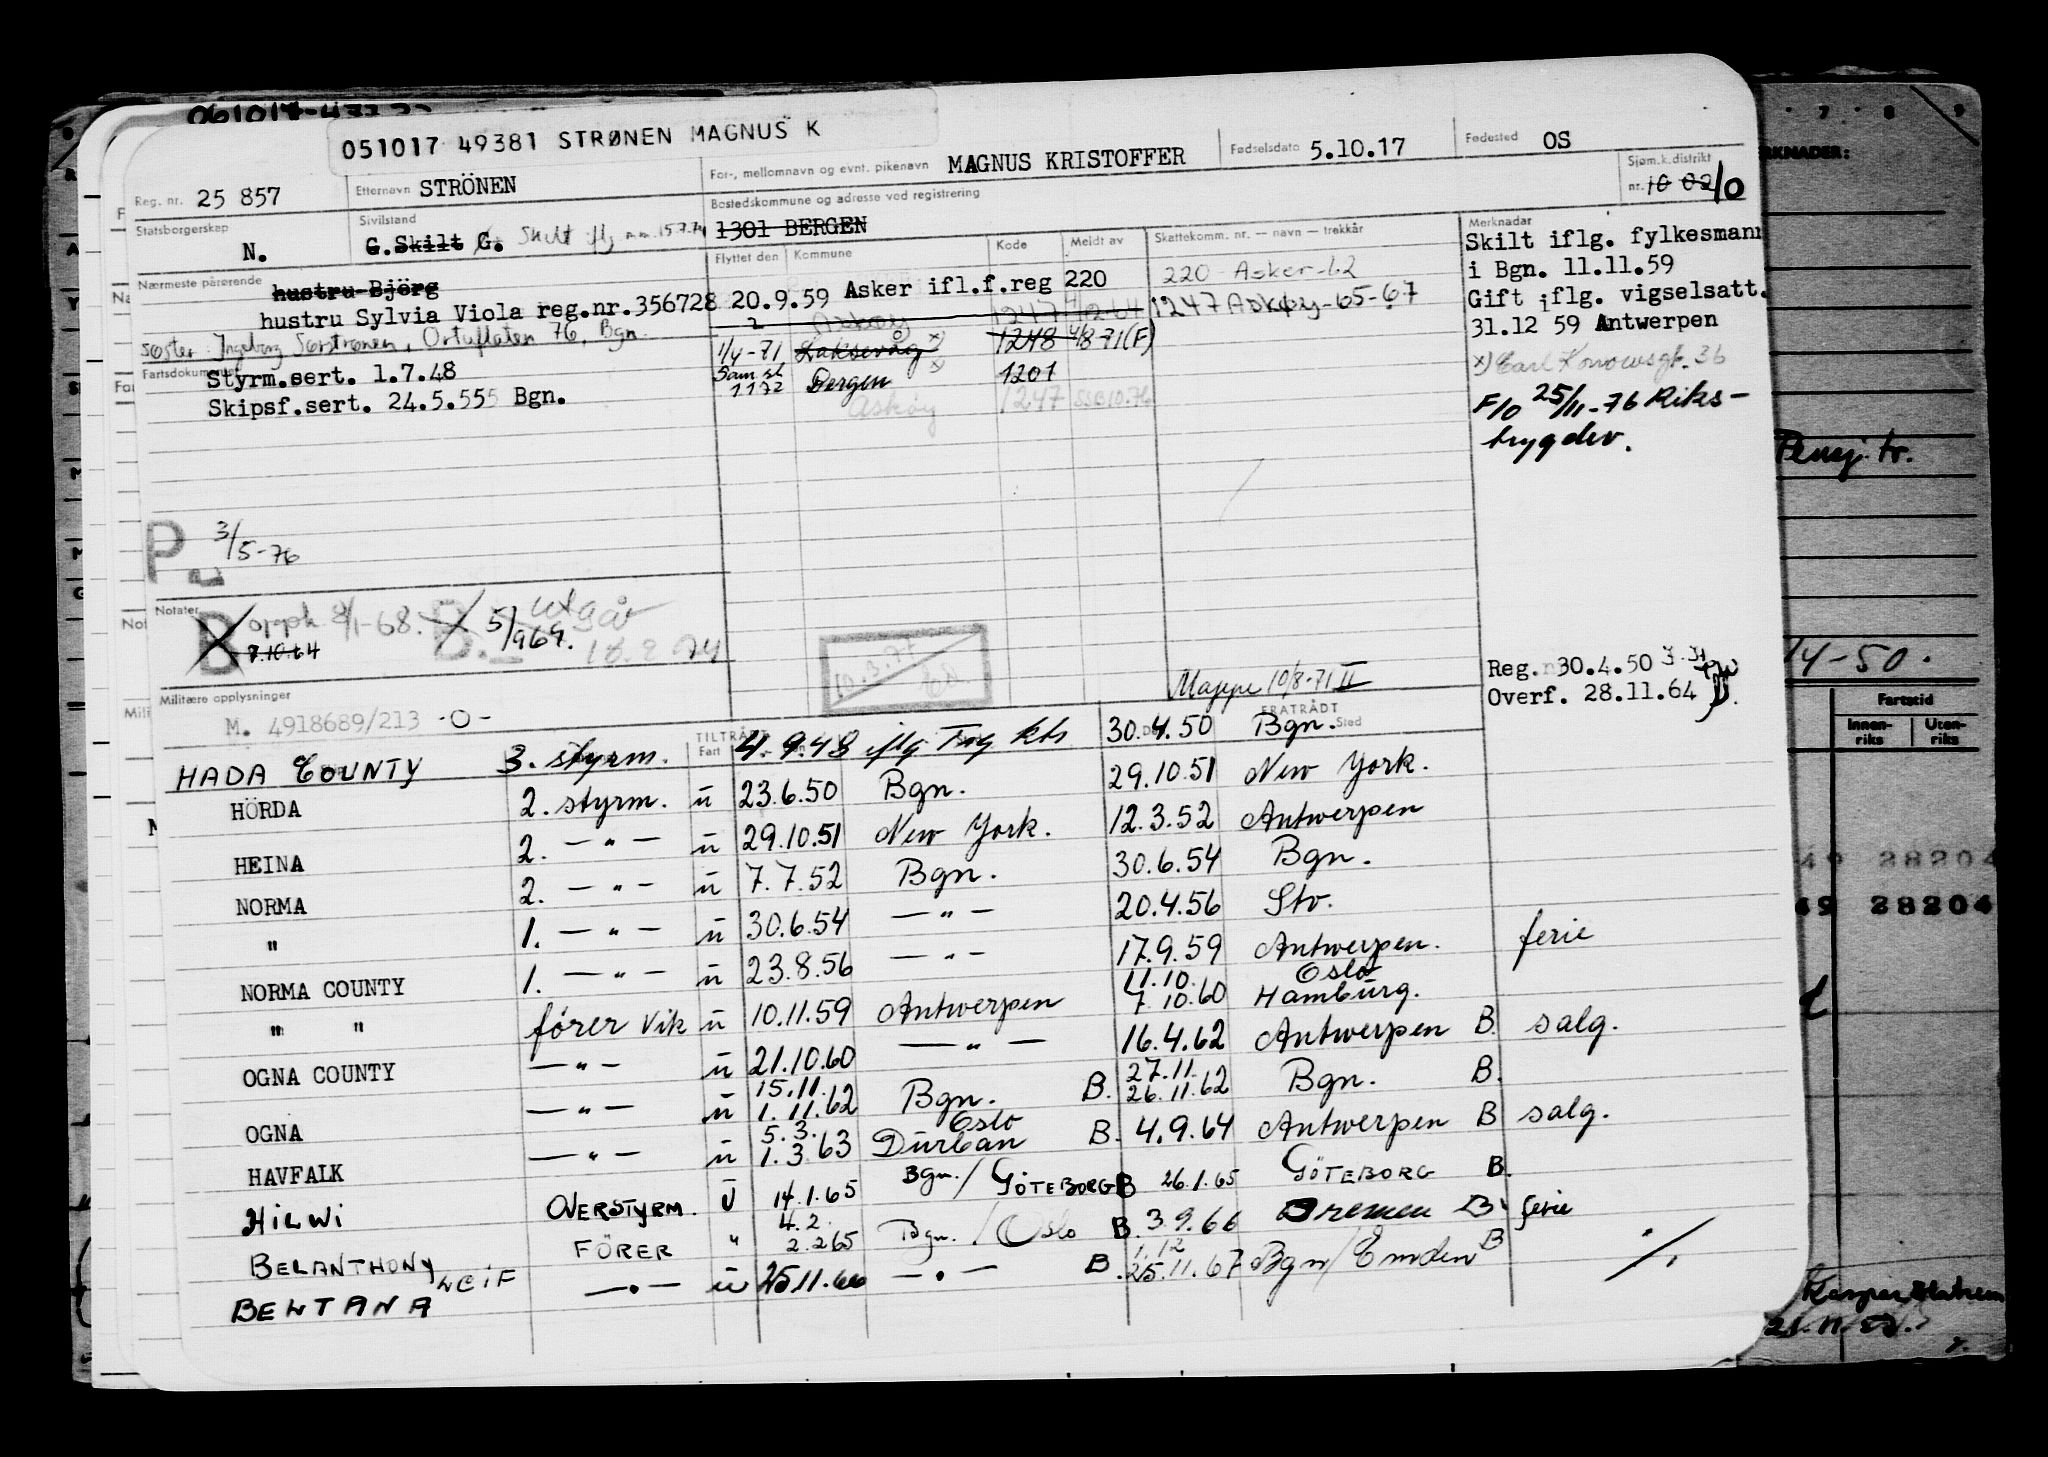 051017 49381 STRØNEN MAGNUS K
Reg. nr. 25 857
Etternavn STRÖNEN
For-, mellomnavn og evnt. pikenavn MAGNUS KRISTOFFER
Fødselsdato 5.10.17
Fødested OS
Sjøm.k.distrikt
nr. 10 02 10
Statsborgerskap N.
Sivilstand G. Skilt G. Skilt
Bostedskommune og adresse ved registrering
1301 BERGEN
Flyttet den Kommune Kode Meldt av Skattekomm. nr. — navn — trekkår
Merknader
Skilt iflg. fylkesmann
i Bgn. 11.11.59
Gift iflg. vigselsatt.
31.12 59 Antwerpen
x) Carl Konowsgt. 36
F/O 25/11-76 Riks-
trygdev.
Nærmeste pårørende
hustru Björg
hustru Sylvia Viola reg.nr.356728
søster Ingeborg Sørstrønen, Ortuflaten 76, Bgn.
20.9.59 Asker ifl.f.reg 220
220 - Asker-62
Askøy 1247
1247 Askøy-65-67
1/4-71 Laksevåg x) 1248 4/8-71(F)
Sam.sl. 1172 Bergen x) 1201
Askøy 1247 SSB 10.76
Fartsdokument
Styrm.sert. 1.7.48
Skipsf.sert. 24.5.555 Bgn.
P. 3/5-76
Notater
B opph 8/1-68. B. 5/9 64. utgår
7.10.64
Mappe 10/8-71 II
Reg. 30.4.50
Overf. 28.11.64
Militære opplysninger
M. 4918689/213 -0-
TILTRÅDT
Fart
FRATRÅDT
Sted
HADA COUNTY 3. styrm. 4.9.48 iflg Trg kts 30.4.50 Bgn.
HÖRDA 2. styrm. u 23.6.50 Bgn. 29.10.51 New York.
HEINA 2. — " — u 29.10.51 New York. 12.3.52 Antwerpen
NORMA 2. — " — u 7.7.52 Bgn. 30.6.54 Bgn.
" 1. — " — u 30.6.54 — " — 20.4.56 Stv.
NORMA COUNTY 1. — " — u 23.8.56 — " — 17.9.59 Antwerpen. ferie
" " fører vik u 10.11.59 Antwerpen 11.10. 7.10.60 Oslo Hamburg.
OGNA COUNTY — " — u 21.10.60 — " — 16.4.62 Antwerpen B. salg.
OGNA — " — u 15.11. 1.11.62 Bgn. B. 27.11. 26.11.62 Bgn. B.
HAVFALK — " — u 5.3. 1.3.63 Oslo Durban B. 4.9.64 Antwerpen B salg.
HILWI OVERSTYRM. U 14.1.65 Bgn./GÖTEBORG B 26.1.65 GÖTEBORG B.
BELANTHONY FÖRER " 4.2. 2.2.65 Bgn. / Oslo B. 3.9.66 Bremen B. ferie
BELTANA LEIF — " — u 25.11.66 — " — B. 1.12 25.11.67 Bgn/Emden B
./.
7 8 9
Pensj.tr.
Fartstid
Innen-
riks
Uten-
riks
49 28204
49 28204